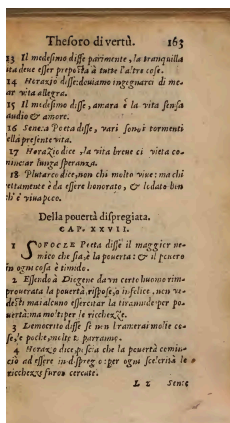 Thesoro di vertù. 163
13 Il medesimo disse parimente, la tranquilla
ita deue esser preposta à tutte l'altre cose.
14 Horatio disse: douiamo ingegnarci di me-
ar vita allegra.
15 Il medesimo disse, amara è la vita senza
audio & amore.
16 Seneca Poeta disse, vari sono i tormenti
ella presente vita.
17 Horatio dice, la vita breue ci vieta co-
minciar lunga speranza.
18 Plutarco dice, non chi molto viue: ma chi
rettamente è da essere honorato, & lodato ben
ch'e' viua poco.
Della pouertà dispregiata.
CAP. XXVII.
1 SOFOCLE Poeta disse il maggior ne-
mico che sia, è la pouertà: & il pouero
in ogni cosa è timido.
2 Essendo à Diogene da vn certo huomo rim-
prouerata la pouertà, rispose, o infelice, non ve-
desti mai alcuno essercitar la tirannide per po-
uertà: ma molti per le ricchezze.
3 Democrito disse se non bramerai molte co-
se, le poche, molte ti parranno.
4 Horatio dice, poscia che la pouertà comin-
ciò ad essere in dispregio: per ogni scelerità le
ricchezze furon cercate.
L 2 Sene